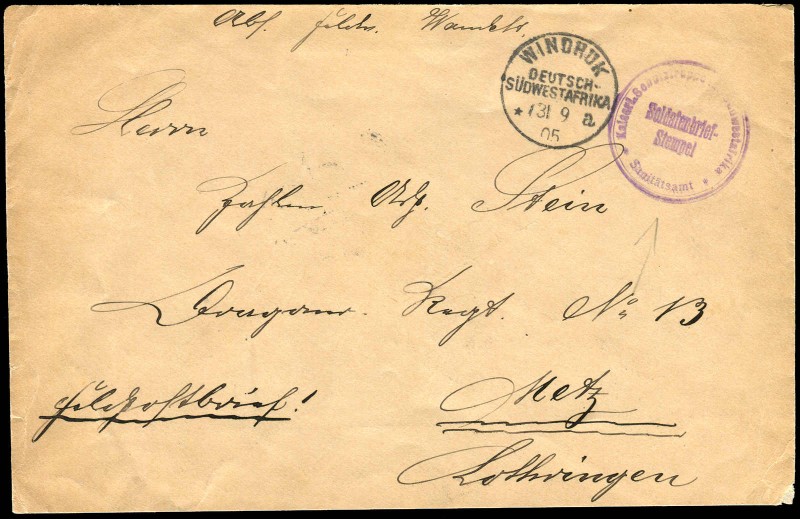 Abs. Feldw.
WINDHUK
DEUTSCH-
SÜDWESTAFRIKA
* 31 9 a
05
Kaiserl. Schutztruppe Südwestafrika
Soldatenbrief-
Stempel
* Sanitätsamt *
Herrn
Zahlm. Asp. Stein
Dragoner Regt. No 13
Feldpostbrief!
Metz
Lothringen